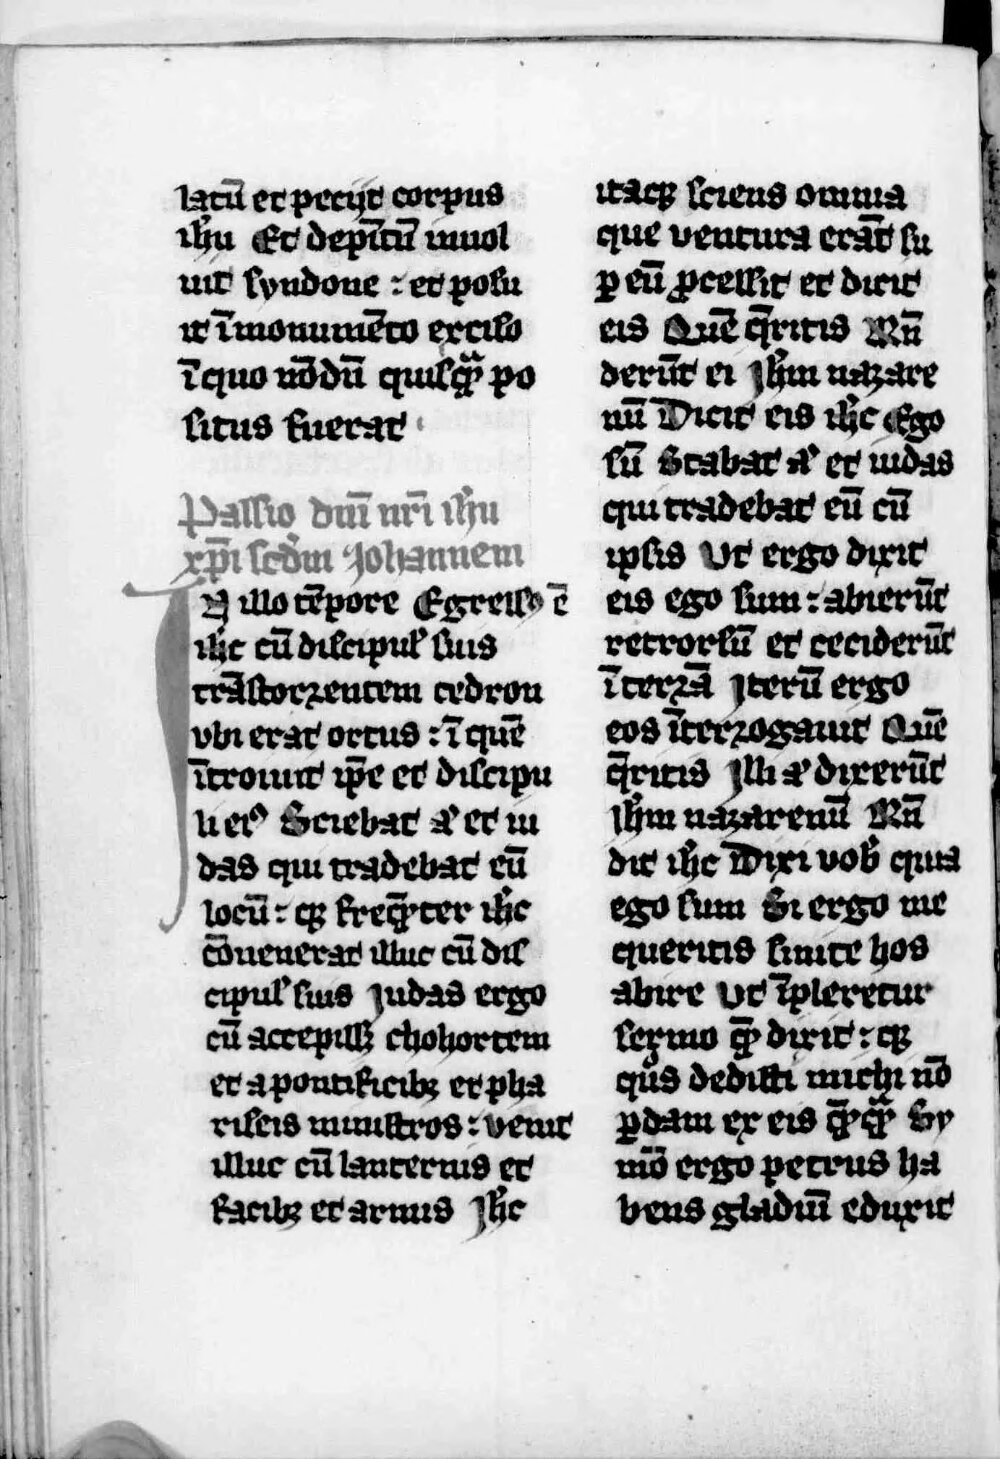 latū et petijt corpus
ihū Et depoſitū inuol
uit syndone : et posu
it ī monumēto exciso
ī quo nōdū quisq̄ꝫ po
situs fuerat
Passio dnī nrī ihū
xpī scdm Johannem
IN illo tēpore Egressꝰ ē
ihc cū discipul' suis
trāstorrentem cedron
vbi erat ortus : ī quē
ītroiuit ip̄e et discipu
li eiꝰ Sciebat aͧ et iu
das qui tradebat eū
locū : qꝫ freq̄nter ihc
cōuenerat illuc cū dis
cipul' suis Judas ergo
cū accepissꝫ chohortem
et a pontificibꝫ et pha
riseis ministros : venit
illuc cū lanternis et
facibꝫ et armis Jhc
itaqꝫ sciens omnia
que ventura erāt su
ꝑ eū ꝓcessit et dicit
eis Quē q̄ritis Rn̄
derūt ei Jhm nazare
nū Dicit eis ihc Ego
sū Stabat aͧ et iudas
qui tradebat eū cū
ipsis Ut ergo dixit
eis ego sum : abierūt
retrorsū et ceciderūt
ī terrā Jterū ergo
eos īterrogauit Quē
q̄ritis Jlli aͧ dixerūt
Jhm nazarenū Rn̄
dit ihc Dixi vob' quia
ego sum Si ergo me
queritis sinite hos
abire Ut īpleretur
sermo quē dixit : qꝫ
qͦs dedisti michi nō
ꝑdam ex eis q̄mq̄ꝫ Sy
mō ergo petrus ha
bens gladiū eduxit